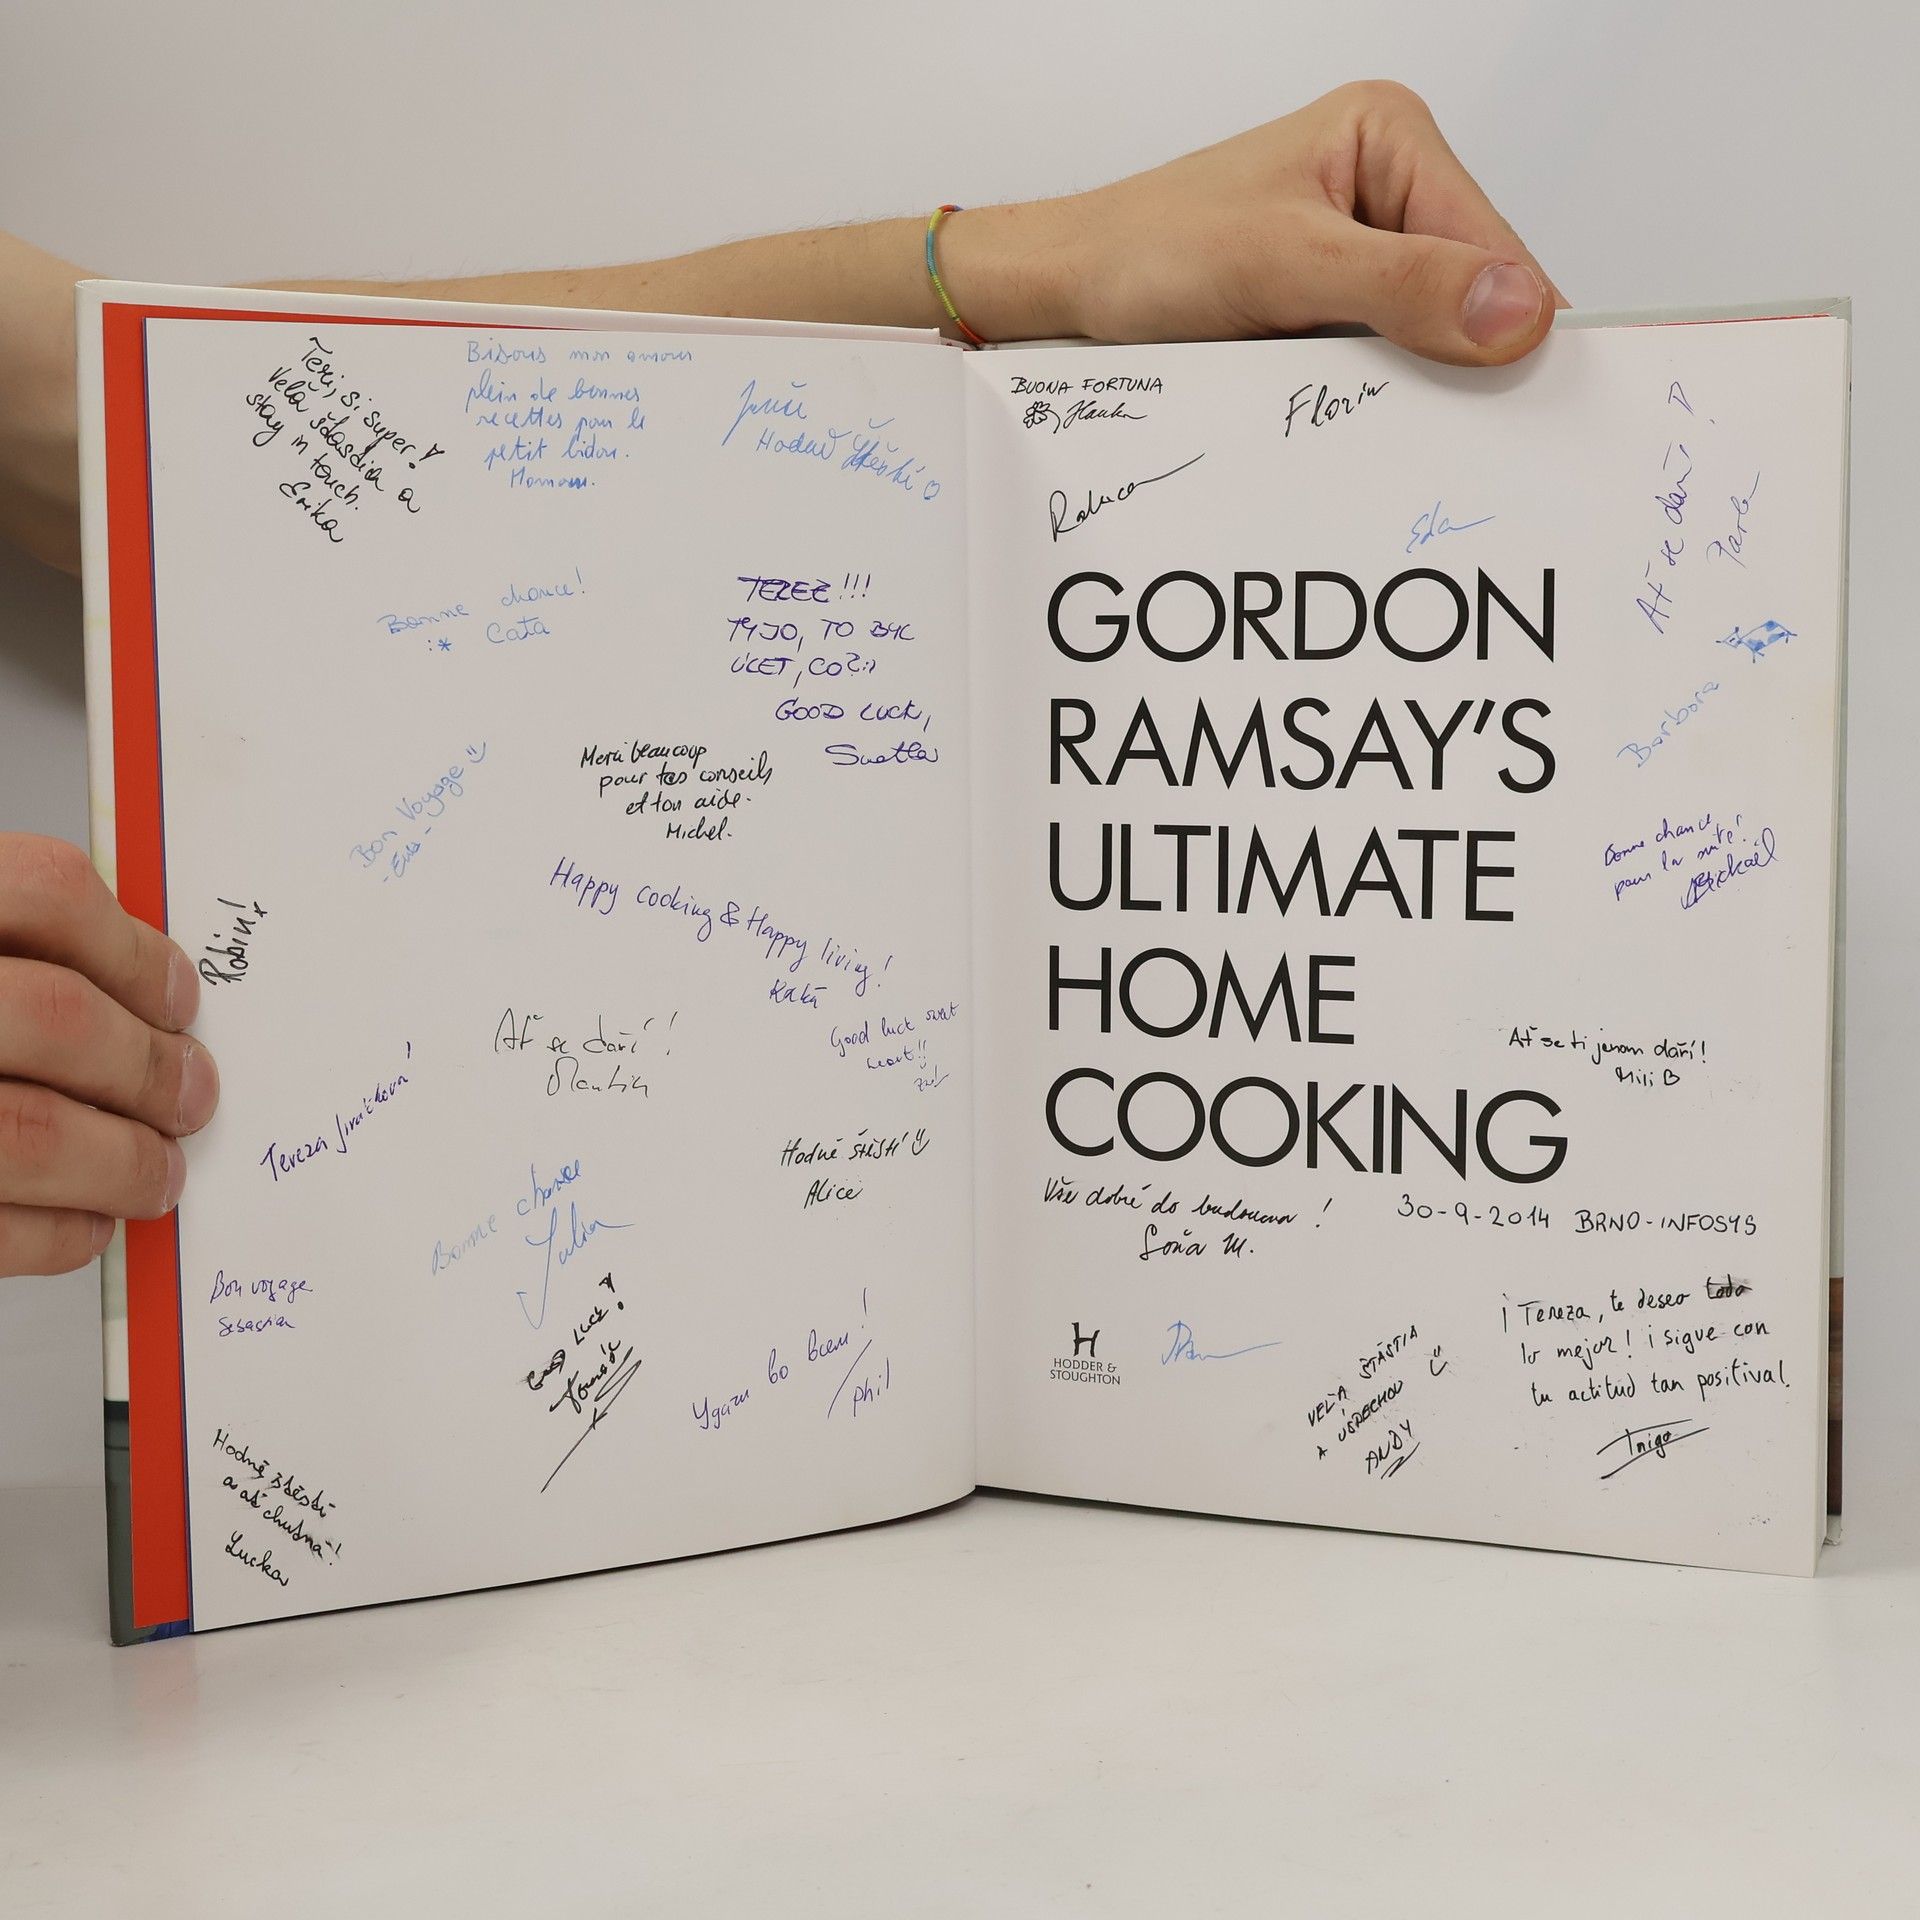 Teri, si super!
Veľa šťastia a
stay in touch.
Erika
Bisous mon amour
plein de bonnes
recettes pour le
petit bidou.
Hodně štěstí
Bonne chance!
:* Cata
TEREZ!!!
TÝJO, TO BYL
ÚLET, CO?:)
GOOD LUCK,
Svetla
Bon Voyage
-Eva-
Merci beaucoup
pour tes conseils
et ton aide.
Michel.
Happy cooking & Happy living!
Katá
Robin!
Good luck sweet
heart!!
Ať se daří!
Martin
Tereza Jiráčková!
Hodně štěstí
Alice
Bonne chance
Julien
Bon voyage
Sebastian
GOOD LUCK!
Tomáš
Удачи во всем!
Phil
Hodně štěstí
a ať chutná!
Lucka
BUONA FORTUNA
Hanka
Florin
Raluca
Eda
Ať se daří!
Pavla
Barbora
GORDON
RAMSAY'S
ULTIMATE
HOME
COOKING
Bonne chance
pour la suite!
Mickaël
Ať se ti jenom daří!
Mili B
Vše dobré do budoucna!
Soňa M.
30-9-2014 BRNO-INFOSYS
H
HODDER &
STOUGHTON
VEĽA ŠŤASTIA
A ÚSPECHOV
ANDY
¡Tereza, te deseo todo
lo mejor! ¡sigue con
tu actitud tan positiva!
Iñigo